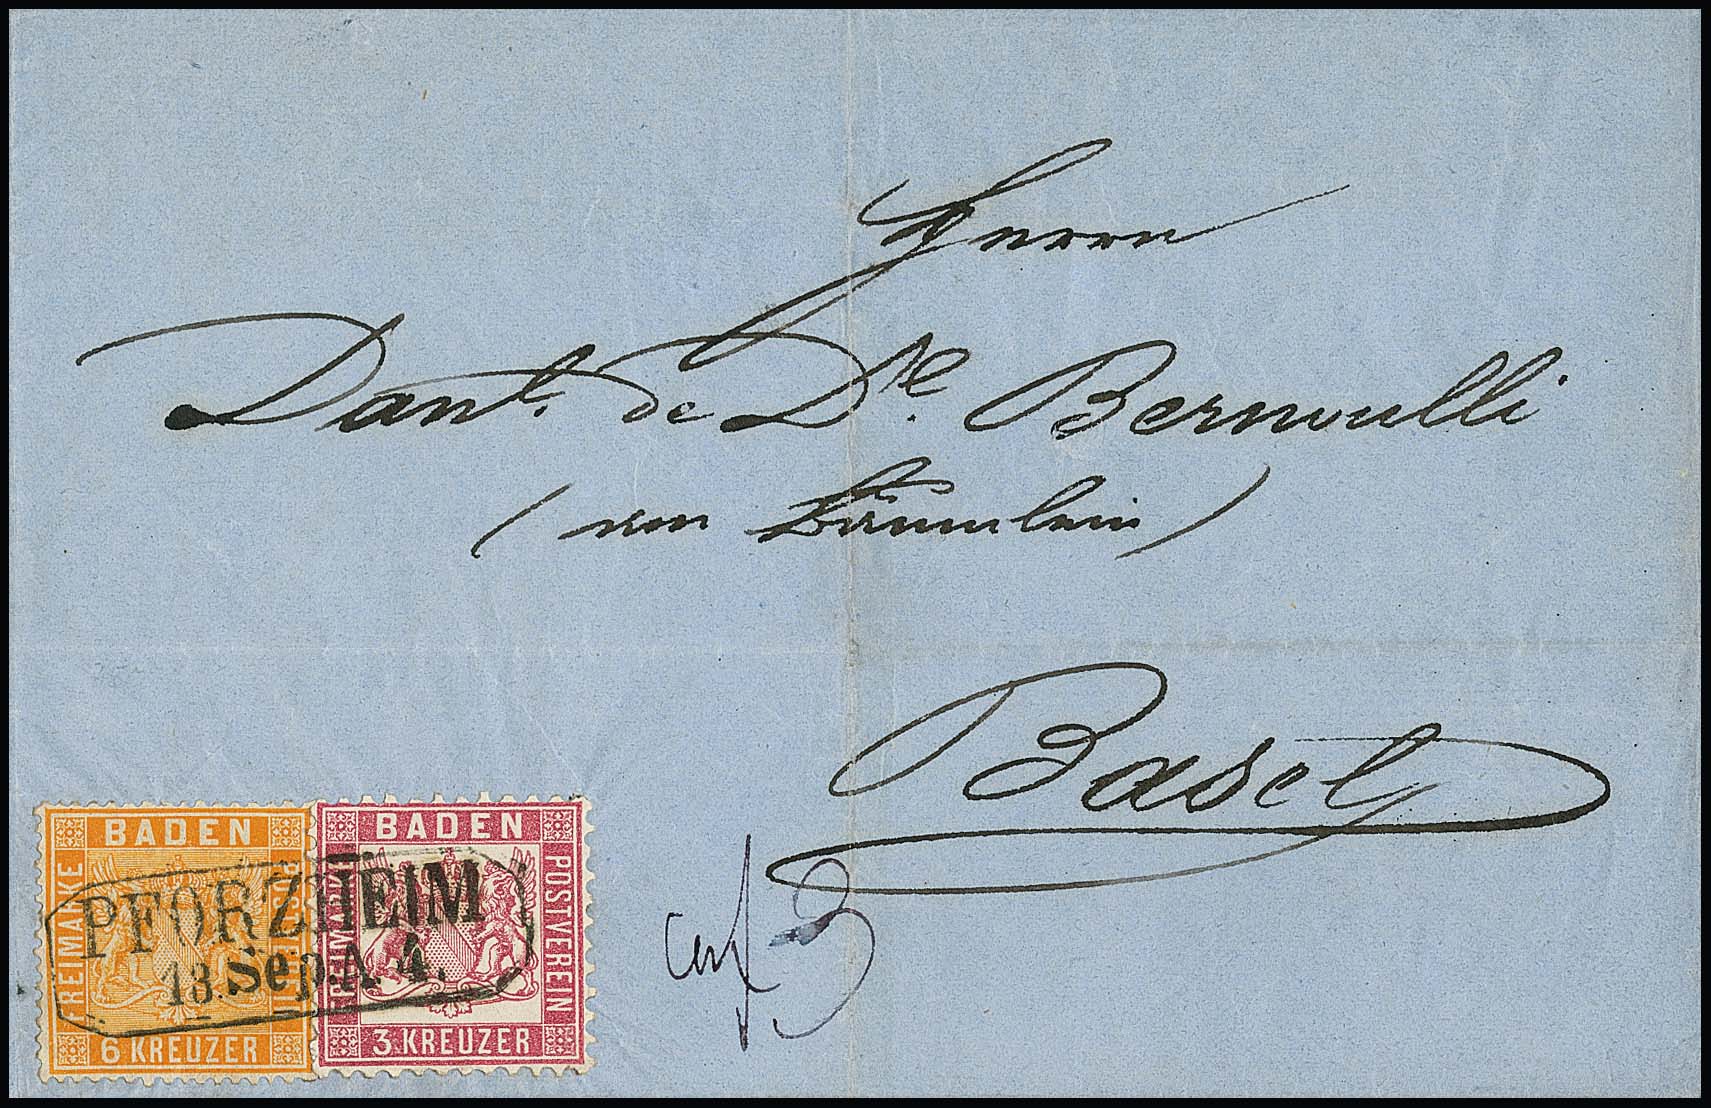 Herrn
Dant. de Dle. Bernoulli
(von Bäumlein)
Basel
BADEN
FREIMARKE
POSTVEREIN
6 KREUZER
BADEN
FREIMARKE
POSTVEREIN
3 KREUZER
PFORZHEIM
13. Sep. A 4.
3